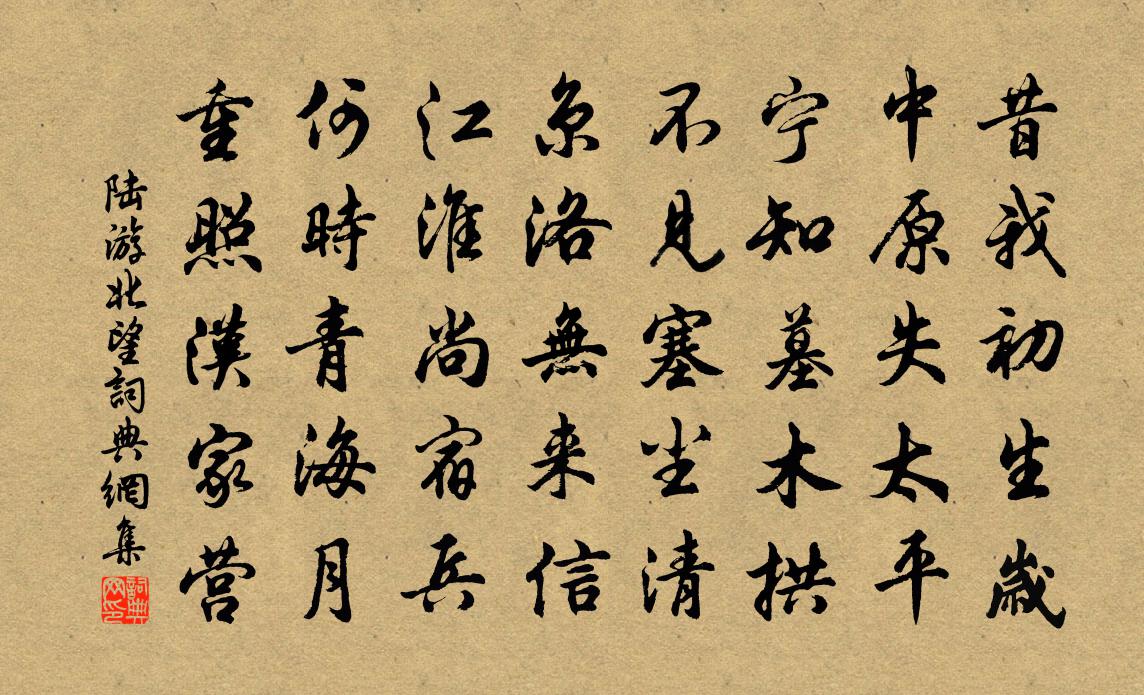 昔我初生歲
中原失太平
宁知墓木拱
不見塞尘清
京洛無来信
江淮尚宿兵
何時青海月
重照漢家营
陆游北望詞典網集
詞典网印